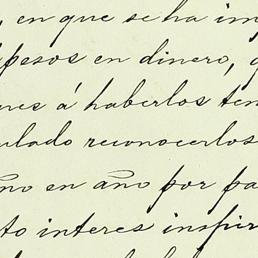 , en que se ha im
pesos en dinero,
nes á haberlos ten
ulado reconocerlos
no en año por pa
to interes inspir